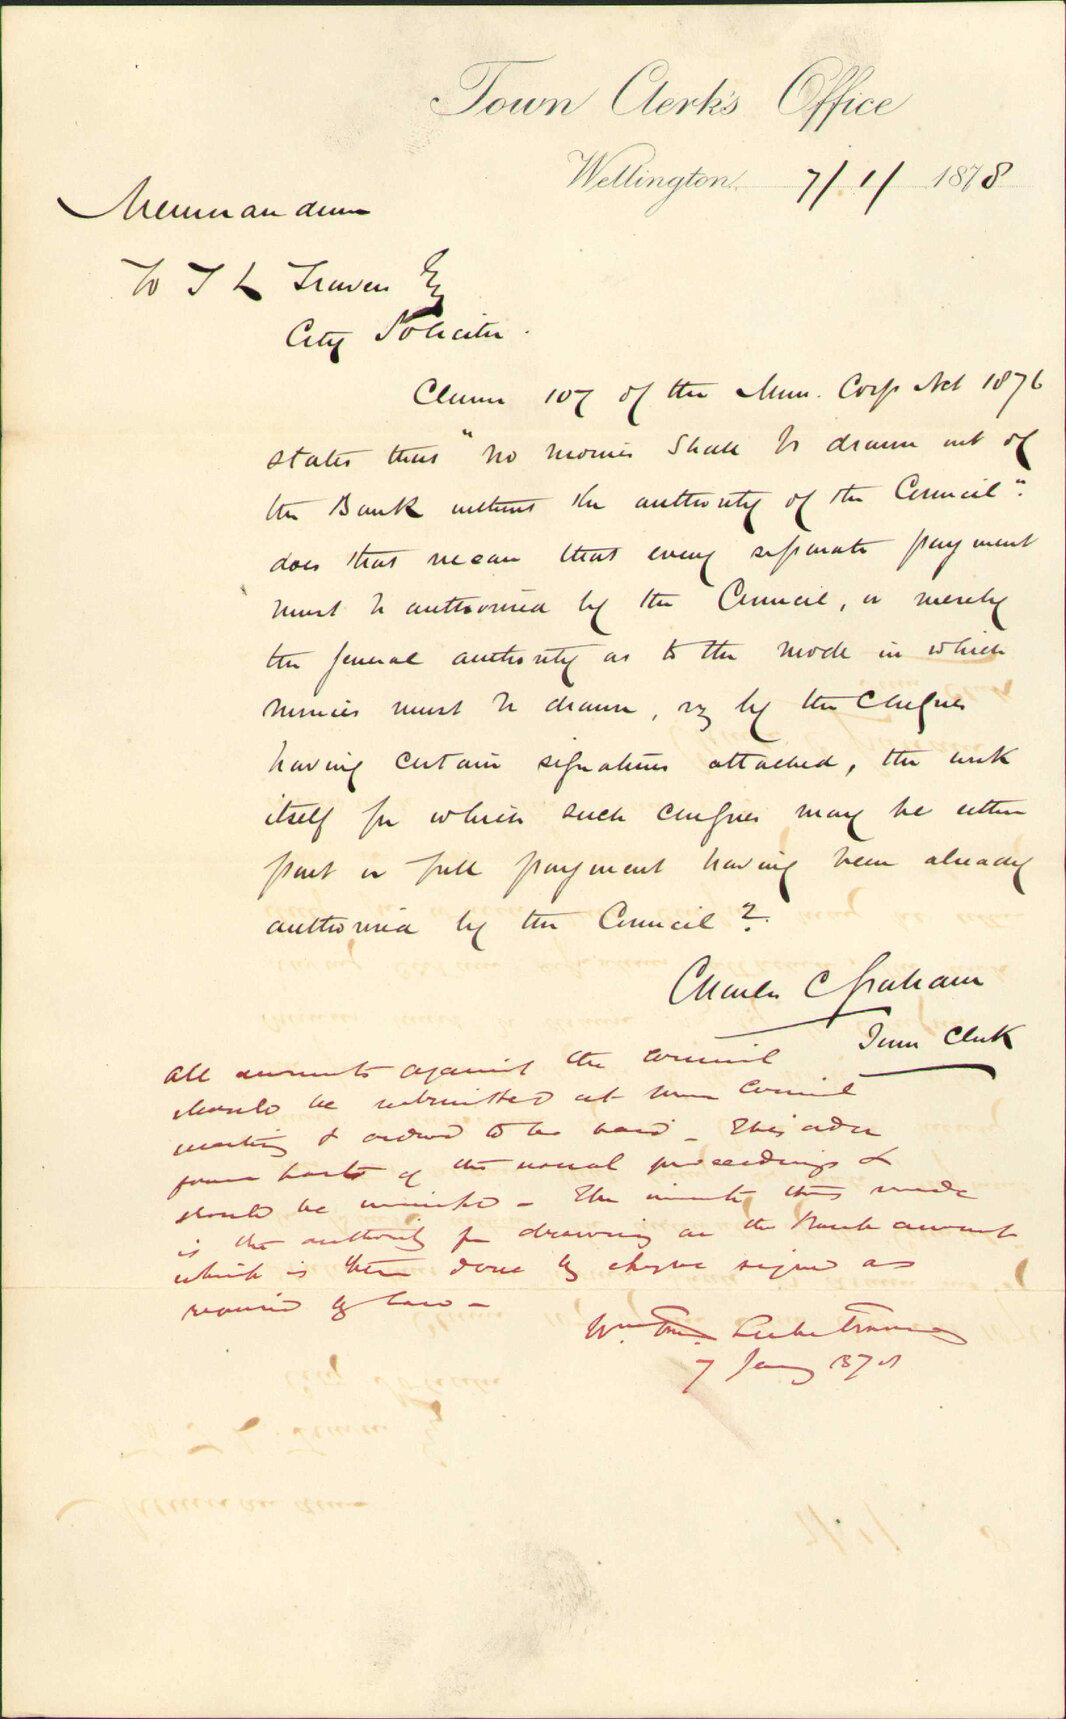 Town Clerk's Office
Wellington 7/1/1878
Memorandum
To T L Travers Esq
City Solicitor.
Clause 107 of the Mun. Corp Act 1876
states that "no monies shall be drawn out of
the Bank without the authority of the Council".
does that mean that every separate payment
must be authorised by the Council, or merely
the general authority as to the mode in which
monies must be drawn, viz by the cheques
having certain signatures attached, the work
itself for which such cheques may be either
part or full payment having been already
authorised by the Council?
Charles C Graham
Town Clerk
all accounts against the council
should be submitted at some council
meeting & ordered to be paid - This order
forms part of the usual proceedings &
should be minuted - The minute thus made
is the authority for drawing on the Bank account
which is then done by cheque signed as
required by law -
Wm Thos Locke Travers
7 Jany 1878